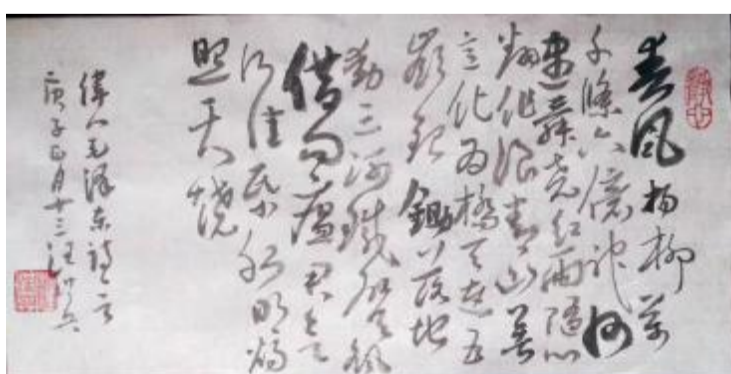 春风杨柳萬
千條六億神州
盡舜堯紅雨隨心
翻作浪青山著
意化为橋天连五
嶺銀鋤落地
動三河鐵臂摇
借问瘟君欲
何往紙船明燭
照天燒
偉人毛泽东詩一首
庚子正月十三汪